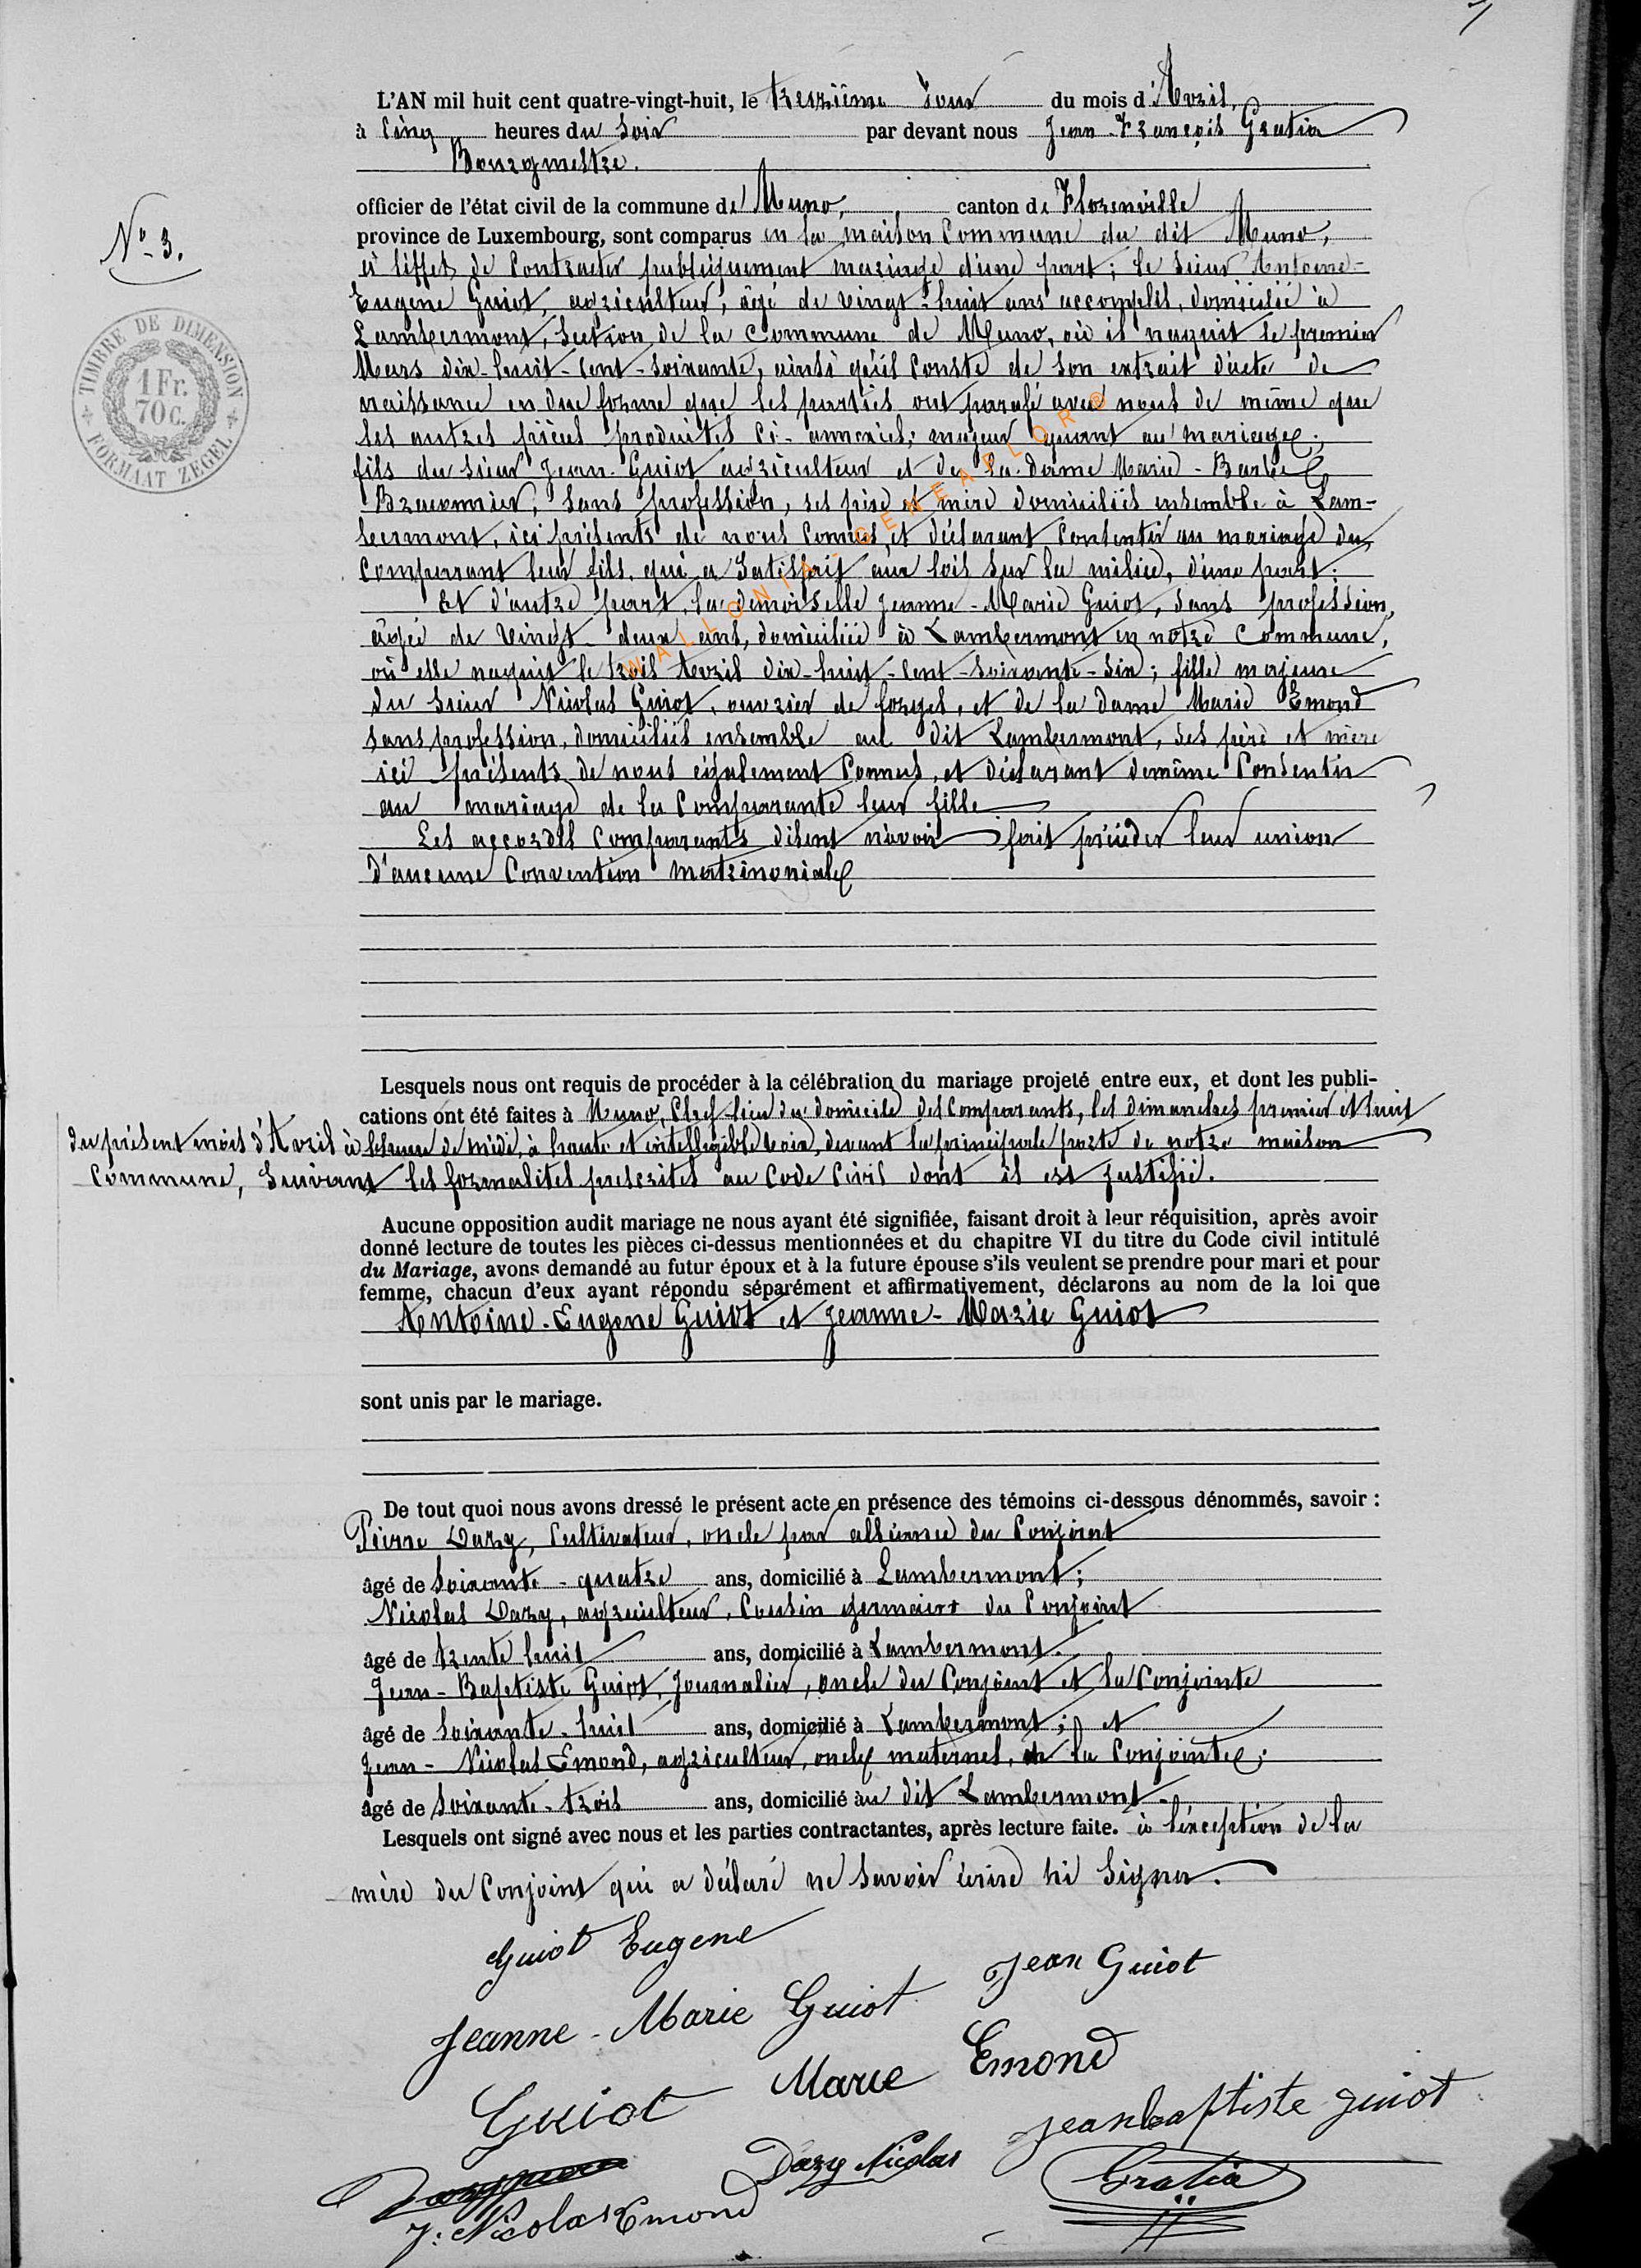 L'AN mil huit cent quatre-vingt-huit, le treizième jour du mois d'Avril,
à cinq heures du soir par devant nous Jean-François Gratia
Bourgmestre.
officier de l'état civil de la commune de Muno, canton de Florenville
N° 3.
province de Luxembourg, sont comparus en la maison Commune du dit Muno,
à l'effet de Contracter publiquement mariage d'une part; le sieur Antoine-
Eugene Guiot, agriculteur, âgé de vingt-huit ans accomplis, domicilié à
Lambermont, Section de la Commune de Muno, où il naquit le premier
Mars dix-huit-cent-soixante, ainsi qu'il Conste de son extrait d'acte de
naissance en due forme que les parties ont parafé avec nous de même que
les autres pièces produites ci-annexées; majeur quant au mariage;
fils du sieur Jean Guiot agriculteur et de la dame Marie-Barbe
TIMBRE DE DIMENSION
1 Fr.
70 c.
FORMAAT ZEGEL
sans profession, ses père et mère domiciliés ensemble à Lam-
bermont, ici présents de nous Connus, et déclarant Consentir au mariage du
Comparant leur fils, qui a Satisfait aux lois sur la milice, d'une part;
Et d'autre part, la demoiselle Jeanne-Marie Guiot, sans profession,
âgée de vingt-deux ans, domiciliée à Lambermont en notre Commune,
où elle naquit le trois Avril dix-huit-cent-soixante-six; fille majeure
du sieur Nicolas Guiot, ouvrier de forges, et de la dame Marie Emond
sans profession, domiciliés ensemble au dit Lambermont, ses père et mère
ici présents de nous également Connus, et déclarant demême Consentir
au mariage de la Comparante leur fille
Les accordés Comparants disent n'avoir fait précéder leur union
d'aucune Convention matrimoniale
WALLONIA-GENEAFLOR ©
Lesquels nous ont requis de procéder à la célébration du mariage projeté entre eux, et dont les publi-
cations ont été faites à Muno, Chef-lieu du domicile des Comparants, les dimanches premier et huit
du présent mois d'Avril à l'heure de midi, à haute et intelligible voix, devant la principale porte de notre maison
Commune, Suivant les formalités prescrites au Code Civil dont il est justifié.
Aucune opposition audit mariage ne nous ayant été signifiée, faisant droit à leur réquisition, après avoir
donné lecture de toutes les pièces ci-dessus mentionnées et du chapitre VI du titre du Code civil intitulé
du Mariage, avons demandé au futur époux et à la future épouse s'ils veulent se prendre pour mari et pour
femme, chacun d'eux ayant répondu séparément et affirmativement, déclarons au nom de la loi que
Antoine-Eugene Guiot et Jeanne-Marie Guiot
sont unis par le mariage.
De tout quoi nous avons dressé le présent acte en présence des témoins ci-dessous dénommés, savoir :
Pierre Dazy, Cultivateur, oncle par alliance du Conjoint
âgé de soixante-quatre ans, domicilié à Lambermont;
Nicolas Dazy, agriculteur, Cousin germain du Conjoint
âgé de trente huit ans, domicilié à Lambermont.
Jean-Baptiste Guiot, Journalier, oncle du Conjoint et la Conjointe
âgé de soixante-huit ans, domicilié à Lambermont; et
Jean-Nicolas Emond, agriculteur, oncle maternel, de la Conjointe;
âgé de soixante-trois ans, domicilié au dit Lambermont
Lesquels ont signé avec nous et les parties contractantes, après lecture faite. à l'exception de la
mère du Conjoint qui a déclaré ne savoir écrire ni signer.
Guiot Eugene
Jean Guiot
Jeanne-Marie Guiot
Marie Emond
Guiot
jeanbaptiste guiot
Dazy Nicolas
Gratia
J: Nicolas Emond